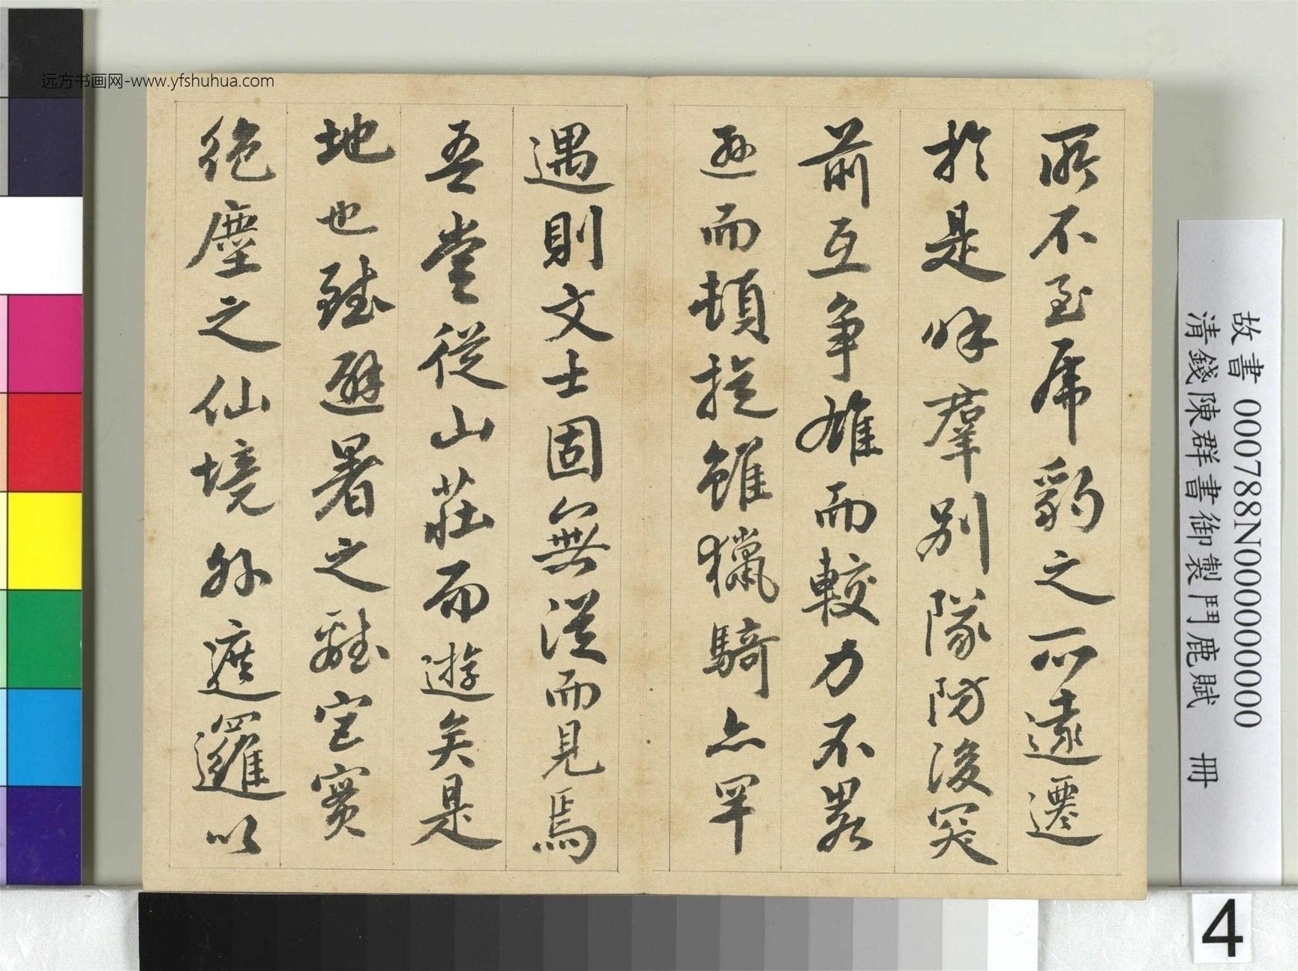 远方书画网-www.yfshuhua.com
不至虎豹之所遠遷
於是呼羣別隊防後突
前互爭雄而較力不畧
遜而頓挫雖獵騎亦罕
遇則文士固無從而見焉
吾嘗從山莊而遊矣是
地也雖避暑之離宮實
絶塵之仙境外遮邏以
故書 000788N000000000
清錢陳群書御製鬥鹿賦 冊
4